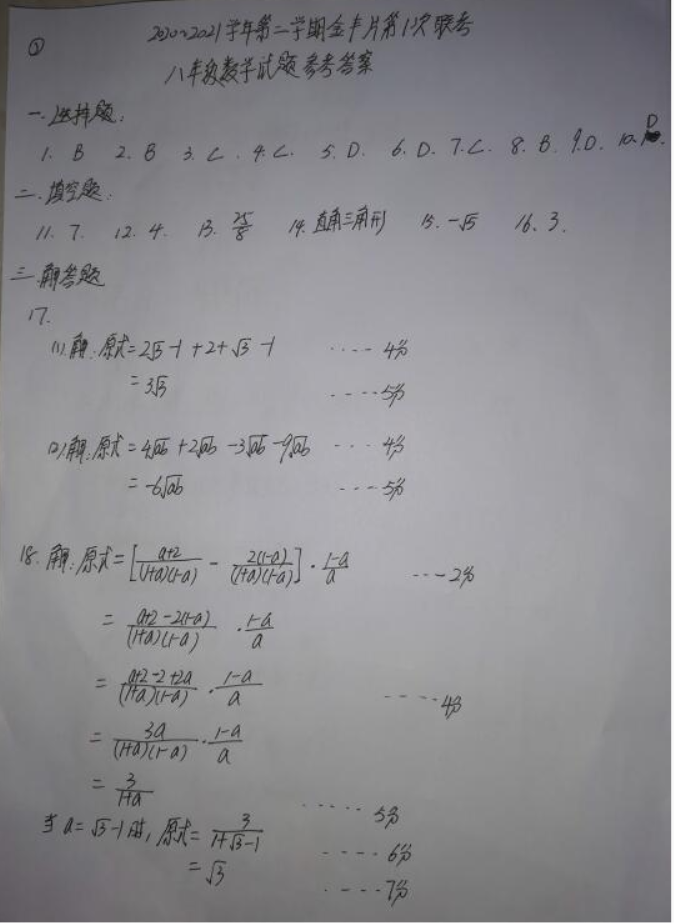 ①
2020~2021学年第二学期金丰片第1次联考
八年级数学试题参考答案
一.选择题:
1. B 2. B 3. C. 4. C. 5. D. 6. D. 7. C. 8. B. 9. D. 10. D
二.填空题:
11. 7. 12. 4. 13. 25/8 14. 直角三角形 15. -√5 16. 3.
三.解答题
17.
(1).解:原式=2√3-1+2+√3-1 ····4分
=3√3 ····5分
(2).解:原式=4√ab+2√ab-3√ab-9√ab ····4分
=-6√ab ····5分
18.解:原式=[a+2/(1+a)(1-a) - 2(1-a)/(1+a)(1-a)]·1-a/a ····2分
= a+2-2(1-a)/(1+a)(1-a) ·1-a/a
= a+2-2+2a/(1+a)(1-a) ·1-a/a ·····4分
= 3a/(1+a)(1-a) ·1-a/a
= 3/1+a ·····5分
当a=√3-1时,原式= 3/1+√3-1 ····6分
=√3 ····7分